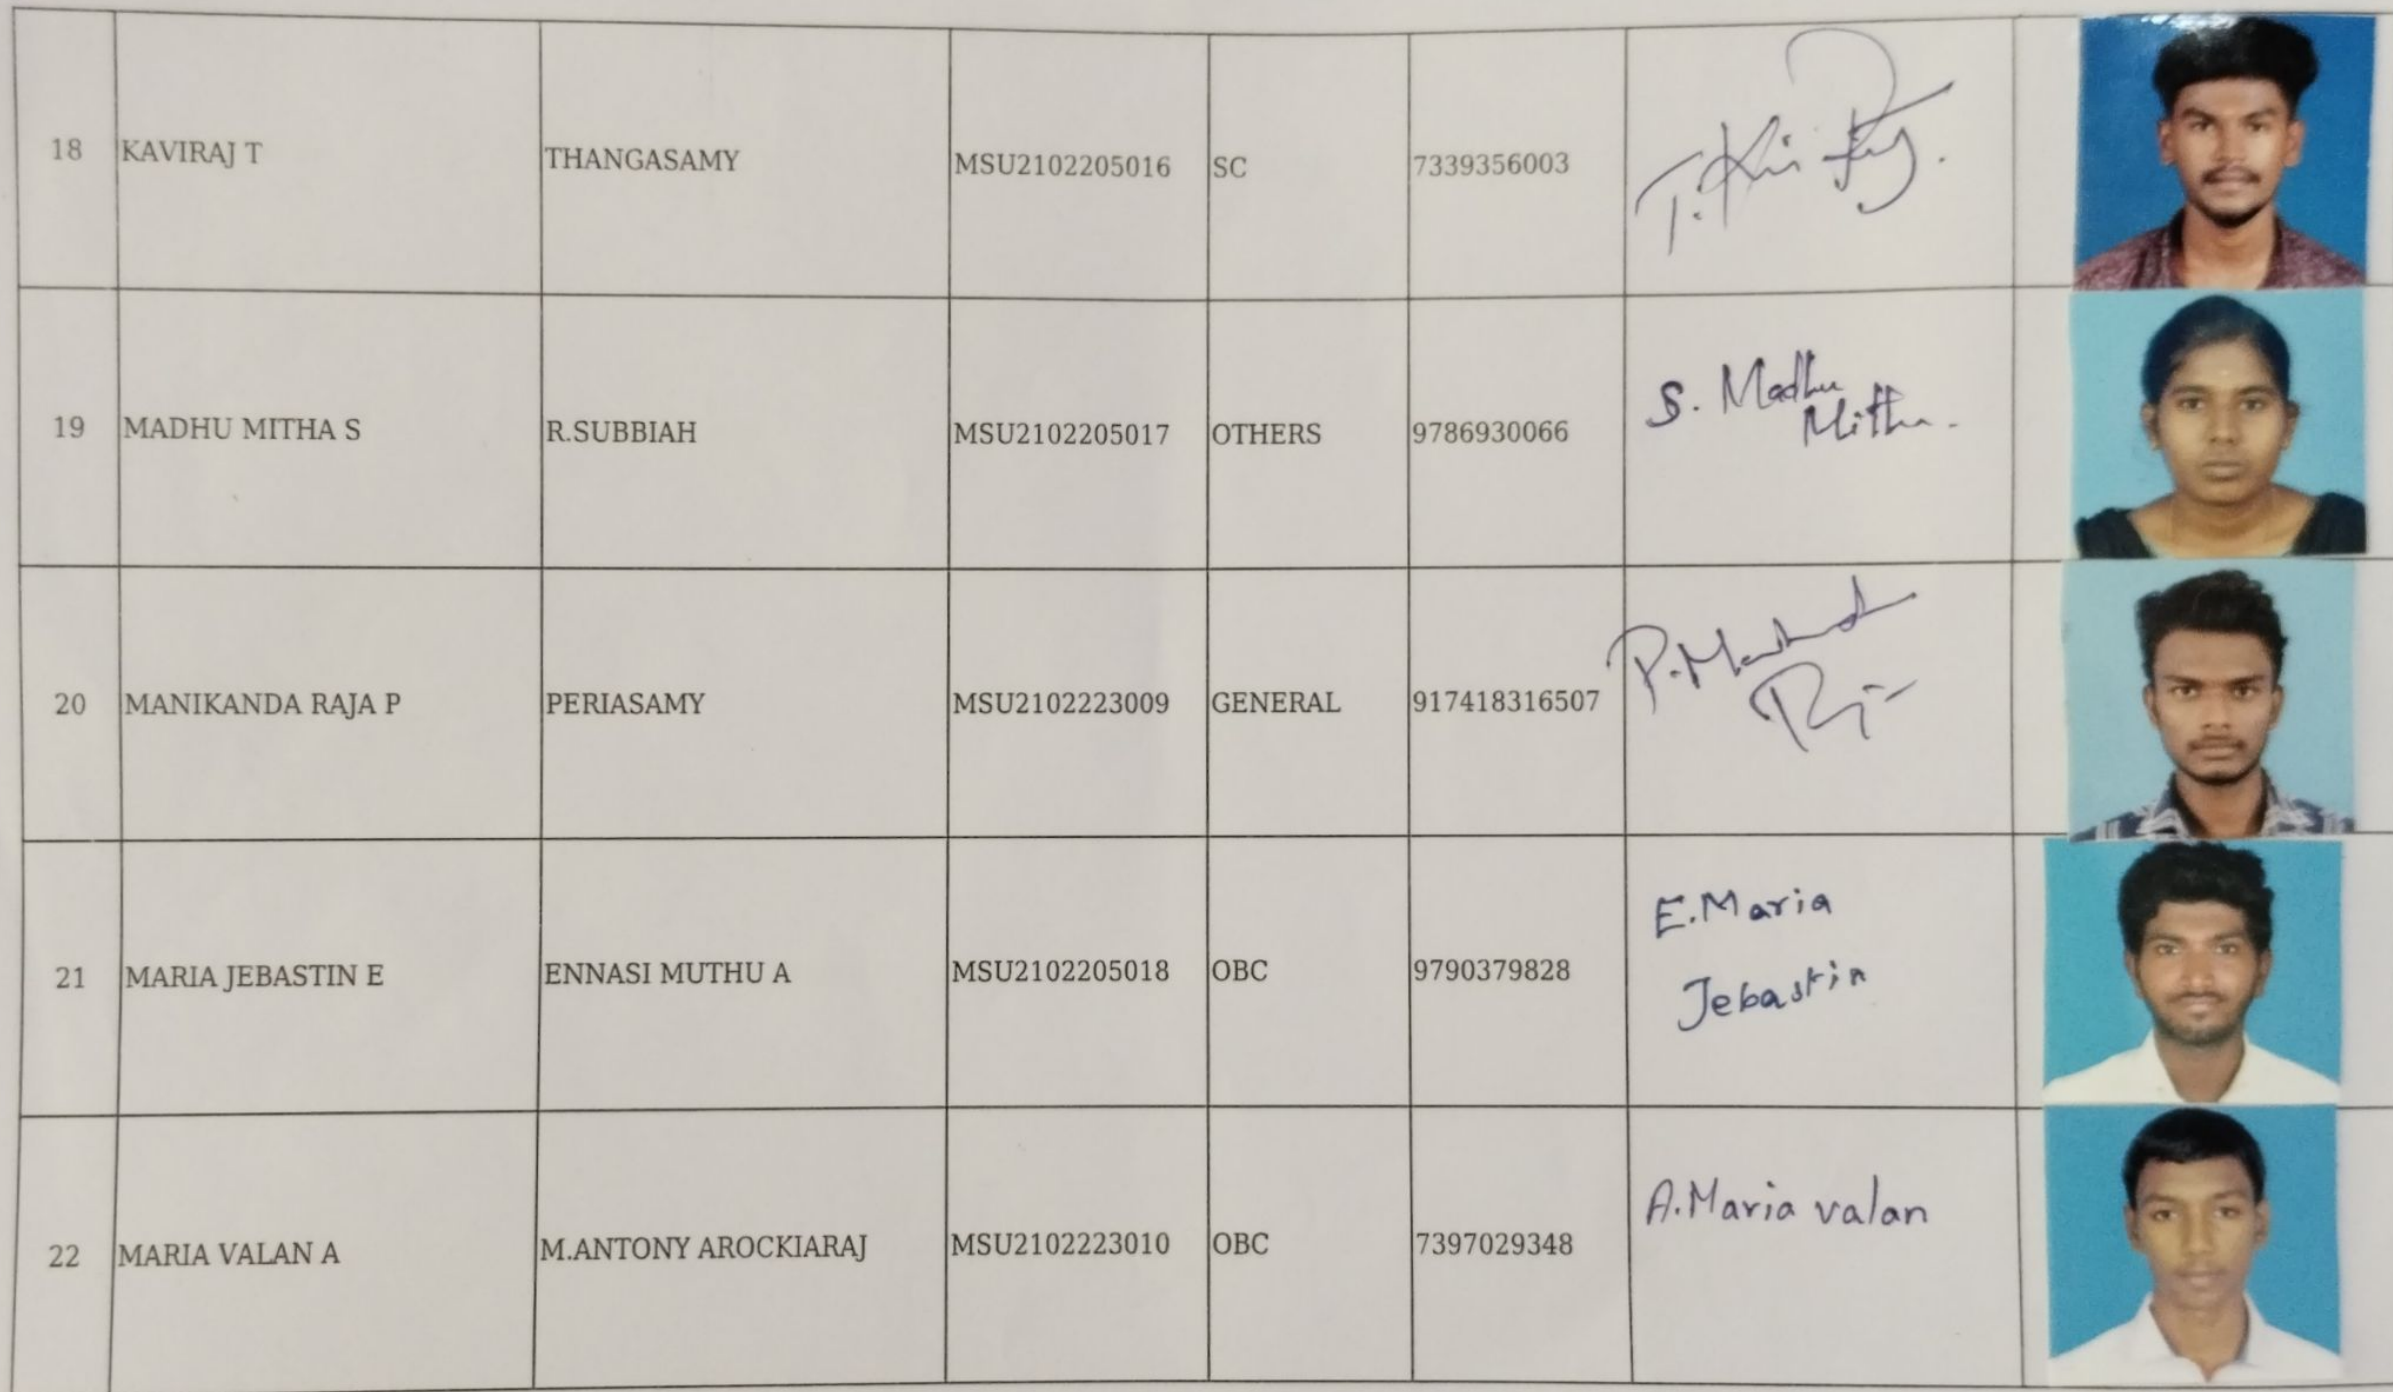 18 KAVIRAJ T THANGASAMY MSU2102205016 SC 7339356003
19 MADHU MITHA S R.SUBBIAH MSU2102205017 OTHERS 9786930066 S. Madhu
Mitha.
20 MANIKANDA RAJA P PERIASAMY MSU2102223009 GENERAL 917418316507
21 MARIA JEBASTIN E ENNASI MUTHU A MSU2102205018 OBC 9790379828 E.Maria
Jebastin
22 MARIA VALAN A M.ANTONY AROCKIARAJ MSU2102223010 OBC 7397029348 A.Maria valan